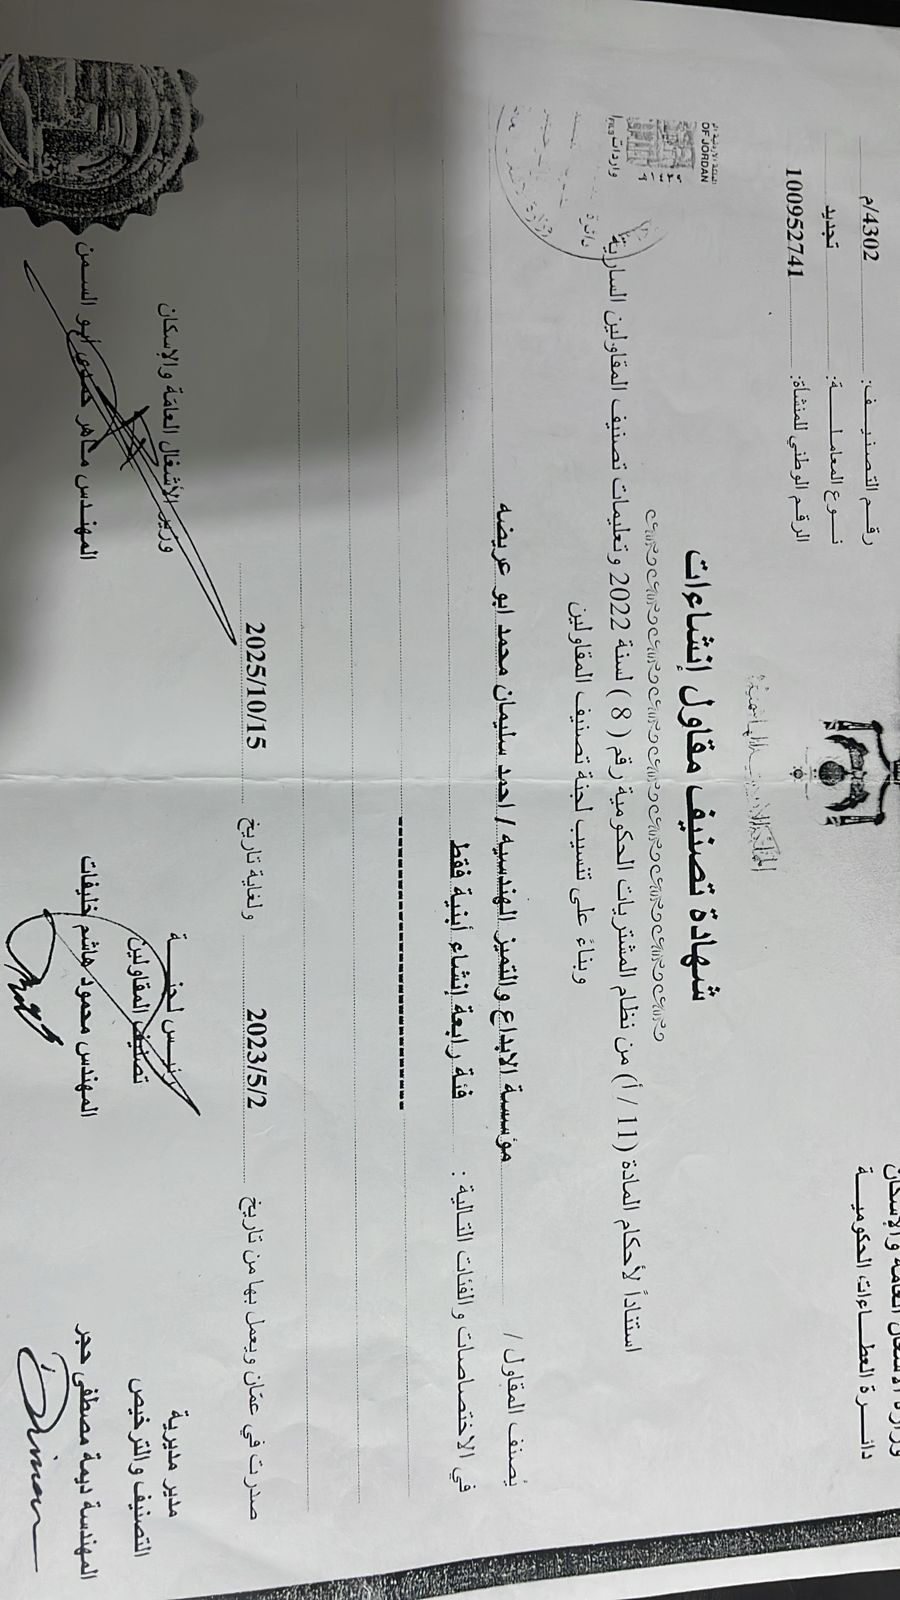 وزارة الأشغال العامة والإسكان
دائــرة العطــاءات الحكوميــة
رقــم التصنيــف: 4302/م
نــوع المعاملــــة: تجديد
الرقم الوطني للمنشأة: 100952741
المملكة الأردنية الهاشمية
شهادة تصنيف مقاول إنشاءات
استناداً لأحكام المادة (11 / أ) من نظام المشتريات الحكومية رقم ( 8 ) لسنة 2022 وتعليمات تصنيف المقاولين السارية
وبناءً على تنسيب لجنة تصنيف المقاولين
يُصنف المقاول / مؤسسة الابداع والتميز الهندسيه / احمد سليمان محمد ابو عريضه
في الاختصاصات والفئات التالية : فئة رابعة إنشاء أبنية فقط
صدرت في عمّان ويعمل بها من تاريخ 2023/5/2 ولغاية تاريخ 2025/10/15
مدير مديرية
التصنيف والترخيص
المهندسة ديمة مصطفى حجر
رئيــس لجنــــة
تصنيف المقاولين
المهندس محمود هاشم خليفات
وزير الأشغال العامة والإسكان
المهندس ماهر حمدي ابو السمن
OF JORDAN
واردات
دائرة
وزارة